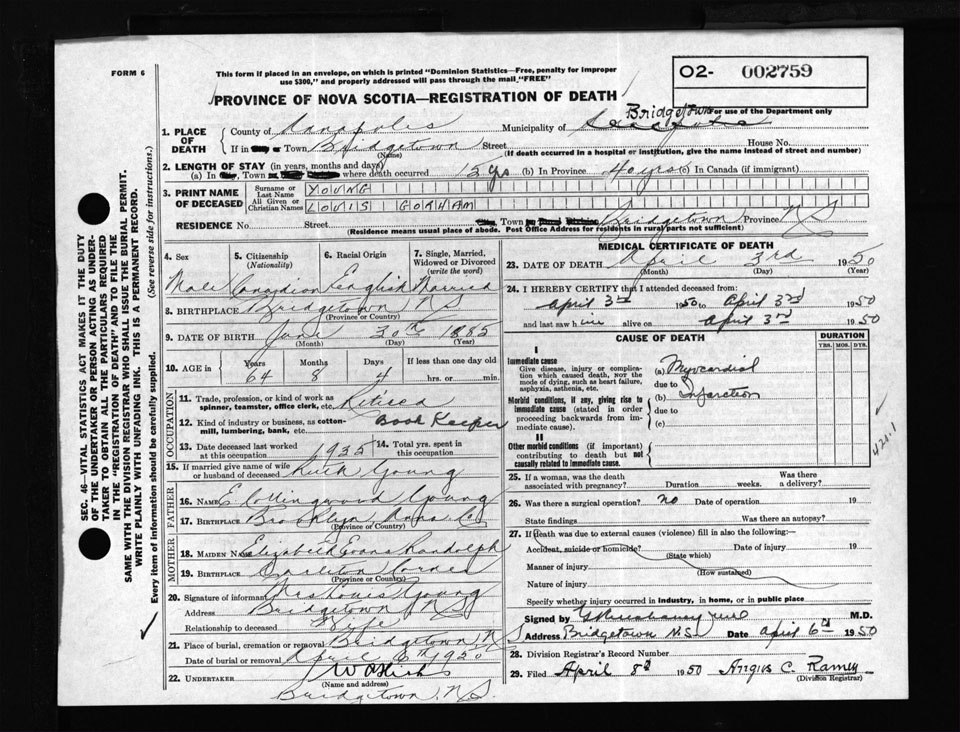 FORM 6
This form if placed in an envelope, on which is printed "Dominion Statistics—Free, penalty for improper
use $300," and properly addressed will pass through the mail, "FREE"
O2- 002759
PROVINCE OF NOVA SCOTIA—REGISTRATION OF DEATH
For use of the Department only
Bridgetown
1. PLACE OF DEATH
County of Annapolis Municipality of
If in or Town Bridgetown Street House No.
(Name) (If death occurred in a hospital or institution, give the name instead of street and number)
2. LENGTH OF STAY (in years, months and days)
(a) In , Town where death occurred 15 yrs (b) In Province 40 yrs (c) In Canada (if immigrant)
3. PRINT NAME OF DECEASED
Surname or Last Name YOUNG
All Given or Christian Names LOUIS GORHAM
RESIDENCE No. Street Town Bridgetown Province N S
(Residence means usual place of abode. Post Office Address for residents in rural parts not sufficient)
4. Sex
Male
5. Citizenship (Nationality)
Canadian
6. Racial Origin
English
7. Single, Married, Widowed or Divorced (write the word)
Married
8. BIRTHPLACE Bridgetown N S
(Province or Country)
9. DATE OF BIRTH 30th 1885
(Month) (Day) (Year)
10. AGE in Years Months Days If less than one day old
64 8 4 hrs. or min.
OCCUPATION
11. Trade, profession, or kind of work as spinner, teamster, office clerk, etc. Retired
12. Kind of industry or business, as cotton-mill, lumbering, bank, etc. Book Keeper
13. Date deceased last worked at this occupation 1935
14. Total yrs. spent in this occupation
15. If married give name of wife or husband of deceased Ruth Young
FATHER
16. NAME E Collingwood Young
17. BIRTHPLACE Brooklyn Anna Co
(Province or Country)
MOTHER
18. MAIDEN NAME Elizabeth Evans Randolph
19. BIRTHPLACE Carleton Corner
(Province or Country)
20. Signature of informant Mrs Louis Young
Address Bridgetown N S
Relationship to deceased Wife
21. Place of burial, cremation or removal Bridgetown N
Date of burial or removal April 6th 1950
22. UNDERTAKER
(Name and address)
Bridgetown, N S.
MEDICAL CERTIFICATE OF DEATH
23. DATE OF DEATH April 3rd 1950
(Month) (Day) (Year)
24. I HEREBY CERTIFY that I attended deceased from:
April 3rd 1950 to April 3rd 1950
and last saw him alive on April 3rd 1950
CAUSE OF DEATH
DURATION
YRS. MOS. DYS.
I
Immediate cause
Give disease, injury or complication which caused death, NOT the mode of dying, such as heart failure, asphyxia, asthenia, etc.
(a) Myocardial
due to
(b) Infarction
Morbid conditions, if any, giving rise to immediate cause (stated in order proceeding backwards from immediate cause).
due to
(c)
II
Other morbid conditions (if important) contributing to death but not causally related to immediate cause.
420.1
25. If a woman, was the death associated with pregnancy? Duration weeks. Was there a delivery?
26. Was there a surgical operation? no Date of operation 19
State findings Was there an autopsy?
27. If death was due to external causes (violence) fill in also the following:
Accident, suicide or homicide? Date of injury 19
(State which)
Manner of injury
(How sustained)
Nature of injury
Specify whether injury occurred in industry, in home, or in public place
Signed by M.D.
Address Bridgetown N.S. Date April 6th 1950
28. Division Registrar's Record Number
29. Filed April 8th 1950 Angus C. Ramey
(Division Registrar)
SEC. 46—VITAL STATISTICS ACT MAKES IT THE DUTY
OF THE UNDERTAKER OR PERSON ACTING AS UNDERTAKER
TO OBTAIN ALL THE PARTICULARS REQUIRED
IN THE "REGISTRATION OF DEATH" AND TO FILE THE
SAME WITH THE DIVISION REGISTRAR WHO SHALL ISSUE THE BURIAL PERMIT.
WRITE PLAINLY WITH UNFADING INK. THIS IS A PERMANENT RECORD.
Every item of information should be carefully supplied. (See reverse side for instructions.)